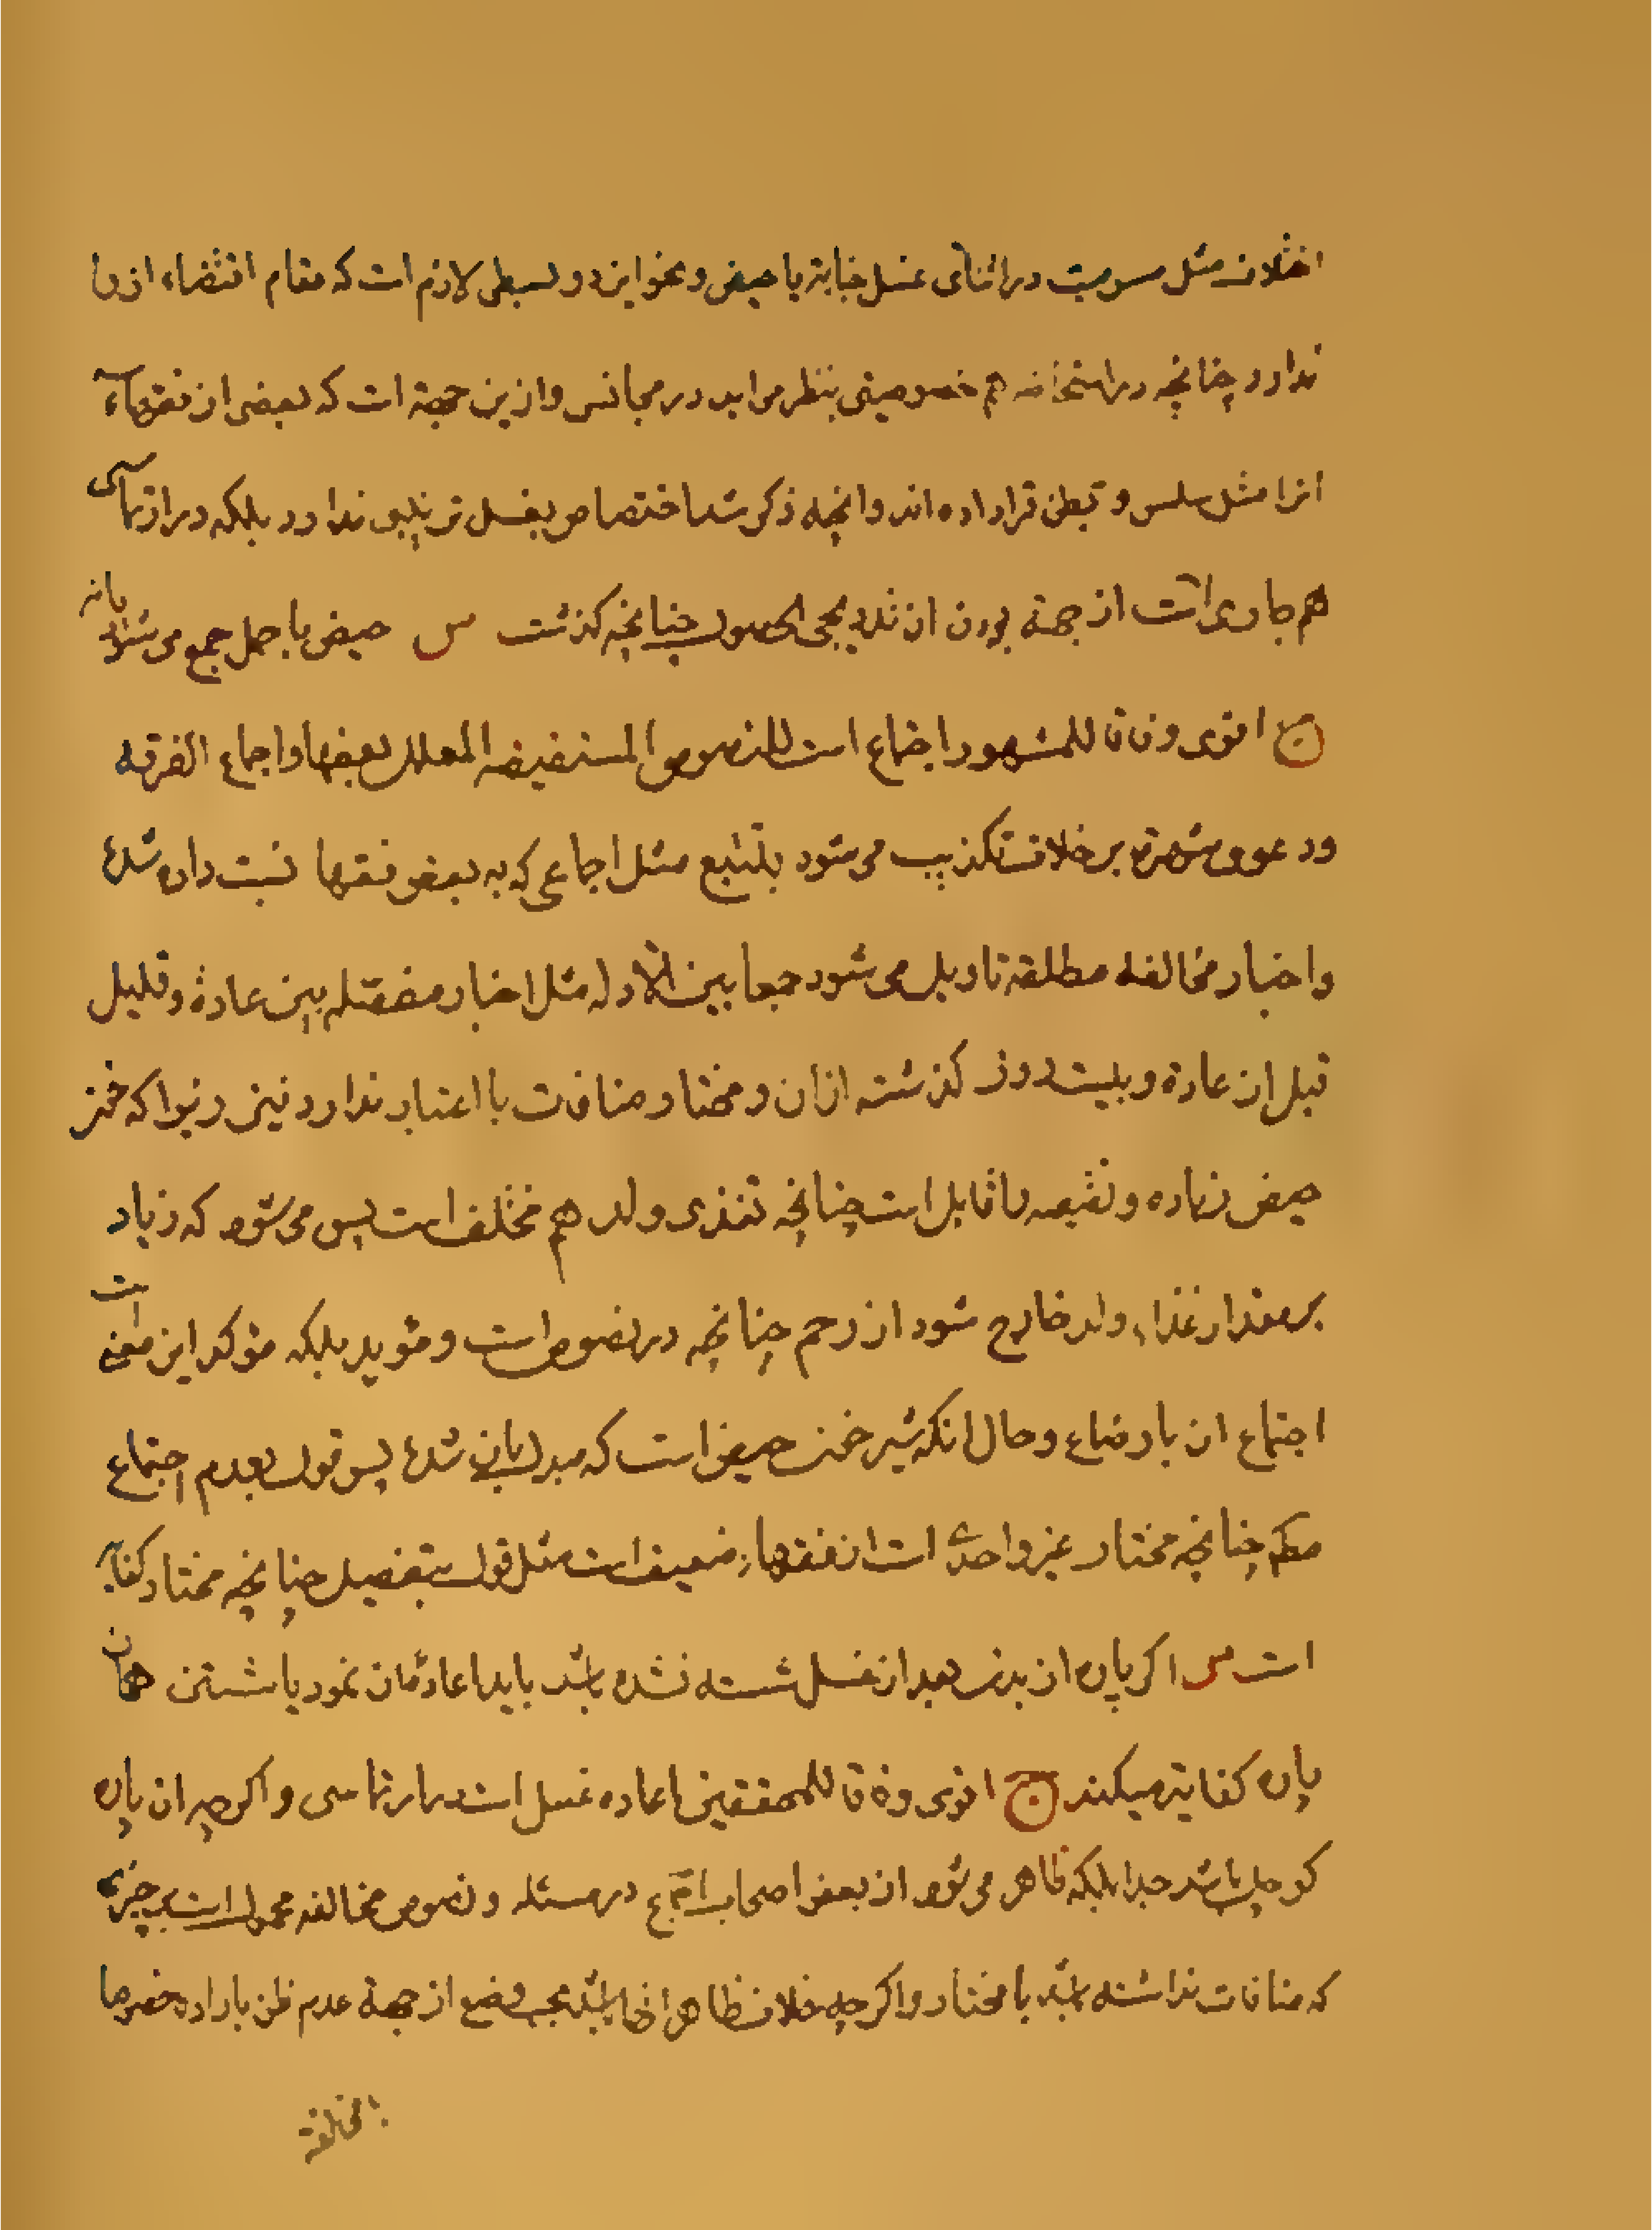 اختلاف مثل مس میت در اثنای غسل جنابة یا حیض و نحو این دو لازم است که مقام اقتضاء ازدیا
ندارد چنانچه در استحاضه هم خصوصیتی بنظر می اید در مجانس وازین جهة است که بعضی از فقهاء
انرا مثل سلس و تبطن قرار داده اند وانچه ذکر شد اختصاص بغسل ترتیبی ندارد بلکه در ارتماسی
هم جاری است از جهة بودن ان تدریجی الحصول چنانچه کذشت س حیض با حمل جمع می شود یا نه
ج اقوی وفاقا للمشهور اجتماع است للنصوص المستفیضه المعلل بعضها واجماع الفرقه
ودعوی شهرة بر خلاف تکذیب می شود بتتبع مثل اجماعی که به بعض فقها نسبت داده شده
واخبار مخالفه مطلقه تاویل می شود جمعا بین الادله مثل اخبار مفصله بین عادة وقلیل
قبل از عادة وبیست روز کذشته ازان ومختار منافات با اعتبار ندارد نیز زیرا که خون
حیض زیاده ونقیصه را قابل است چنانچه تغذی ولد هم مختلف است پس می شود که زیاد
بر مقدار غذاء ولد خارج شود از رحم چنانچه در نصوص است ومؤید بلکه مؤکد این معنی است
اجتماع ان با رضاع وحال انکه شیر خون حیض است که مبدل بان شده پس قول بعدم اجتماع
مطلقا چنانچه مختار غیر واحدی است از فقهاء ضعیف است مثل قول بتفصیل چنانچه مختار کفایه
است س اکر پاره از بدن بعد از غسل شسته نشده باشد باید اعاده ان نمود یا شستن همان
پاره کفایة میکند ج اقوی وفاقا للمحققین اعاده غسل است در ارتماسی واکر چه ان پاره
کوچک باشد جدا بلکه ظاهر می شود از بعض اصحاب اجماع در مسئله ونصوص مخالفه محمول است بر چیزی
که منافات نداشته باشد با مختار واکرچه خلاف ظاهر انها باشد بحسب وضع از جهة عدم ظن باراده
المخالفة